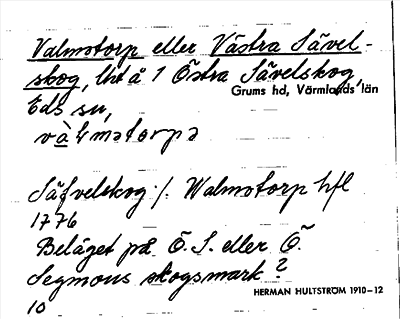 Valmotorp eller Västra Sävel-
skog, lht å 1 Östra Sävelskog,
Grums hd, Värmlands län
Eds sn,
Säfvelskog /. Walmotorp hfl
1776
Beläget på Ö. S. eller Ö.
Segmons skogsmark?
HERMAN HULTSTRÖM 1910-12
10